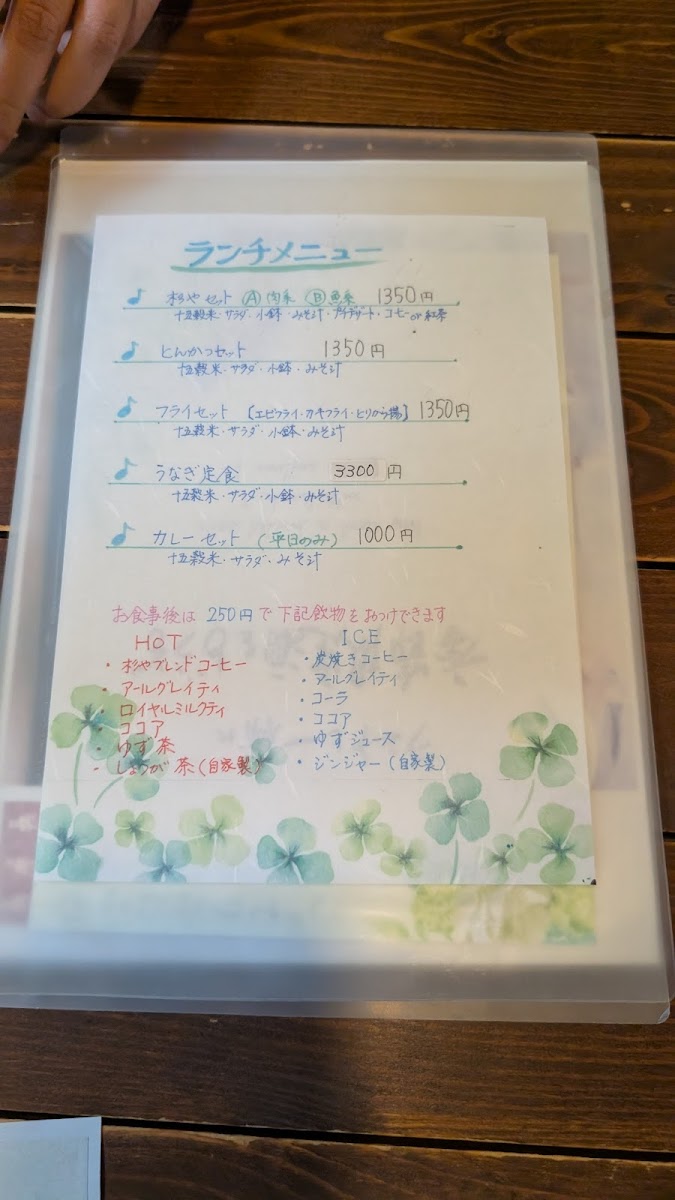 ランチメニュー
杉やセット Ⓐ肉系 Ⓑ魚系 1350円
十五穀米・サラダ・小鉢・みそ汁・プチデザート・コーヒーor紅茶
とんかつセット 1350円
十五穀米・サラダ・小鉢・みそ汁
フライセット [エビフライ・カキフライ・とりから揚] 1350円
十五穀米・サラダ・小鉢・みそ汁
うなぎ定食 3300円
十五穀米・サラダ・小鉢・みそ汁
カレーセット (平日のみ) 1000円
十五穀米・サラダ・みそ汁
お食事後は 250円で下記飲物をおつけできます
HOT
・杉やブレンドコーヒー
・アールグレイティ
・ロイヤルミルクティ
・ココア
・ゆず茶
・しょうが茶(自家製)
ICE
・炭焼きコーヒー
・アールグレイティ
・コーラ
・ココア
・ゆずジュース
・ジンジャー(自家製)